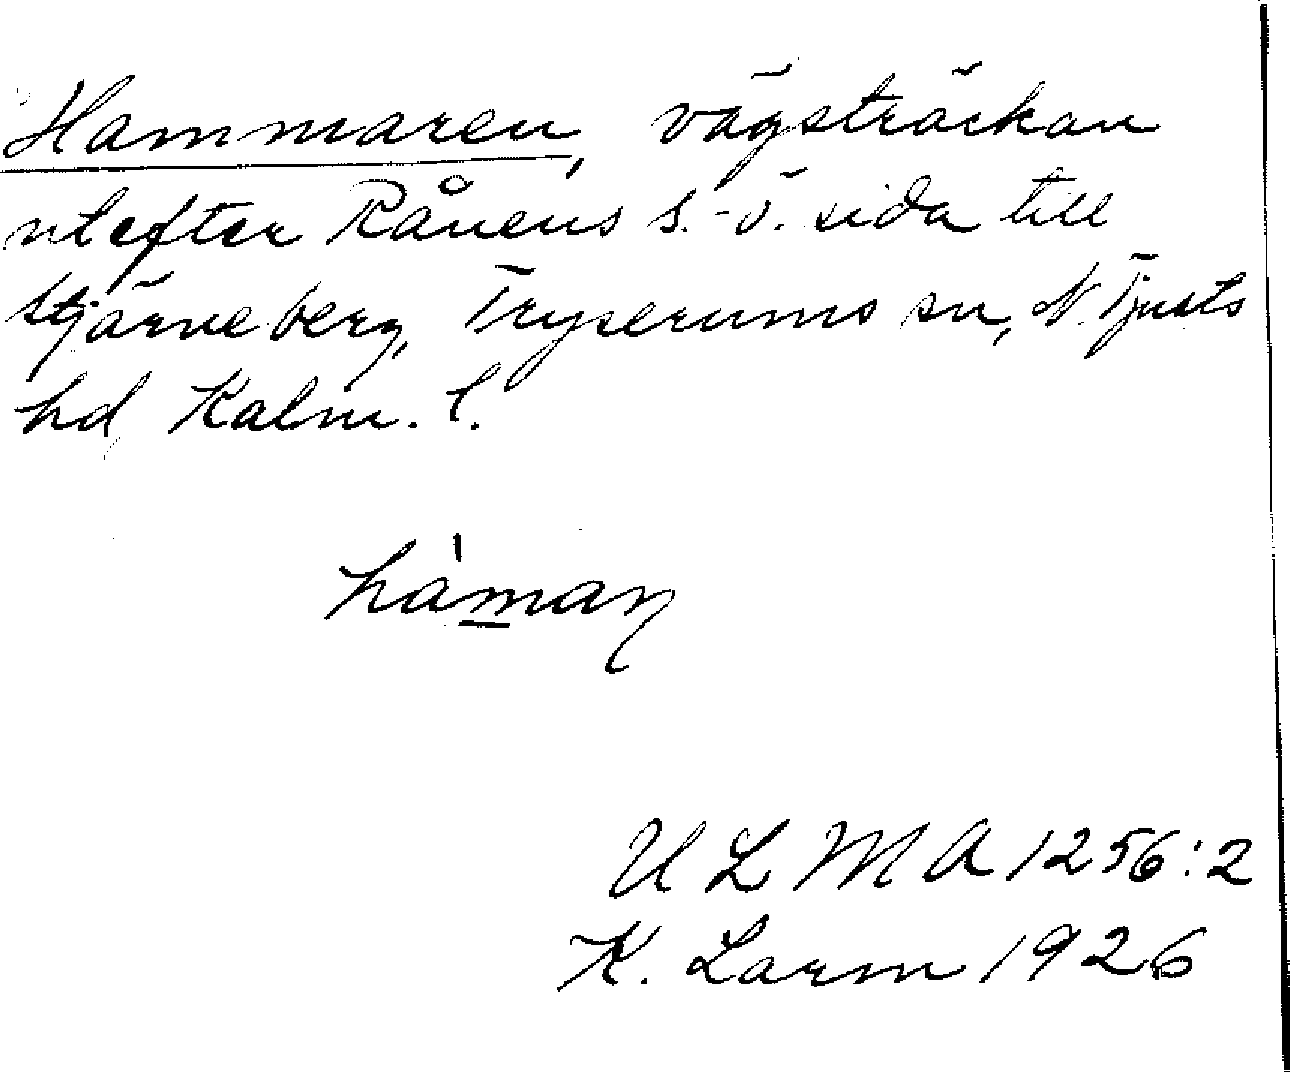 Hammaren, vägsträckan
utefter Rånens s.-ö. sida till
Stjärneberg, Tryserums sn, N. Tjusts
hd Kalm. l.
hàman
ULMA 1256:2
K. Larm 1926